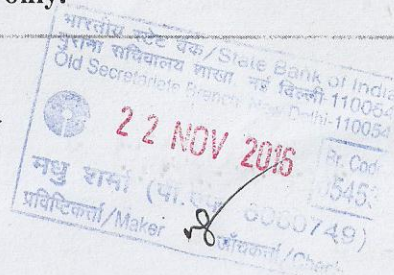 only.
भारतीय स्टेट बैंक/State Bank of India
पुराना सचिवालय शाखा नई दिल्ली-110054
Old Secretariate Branch New Delhi-110054
22 NOV 2016
Br. Code
मधु शर्मा
प्रविष्टिकर्ता/Maker जाँचकर्ता/